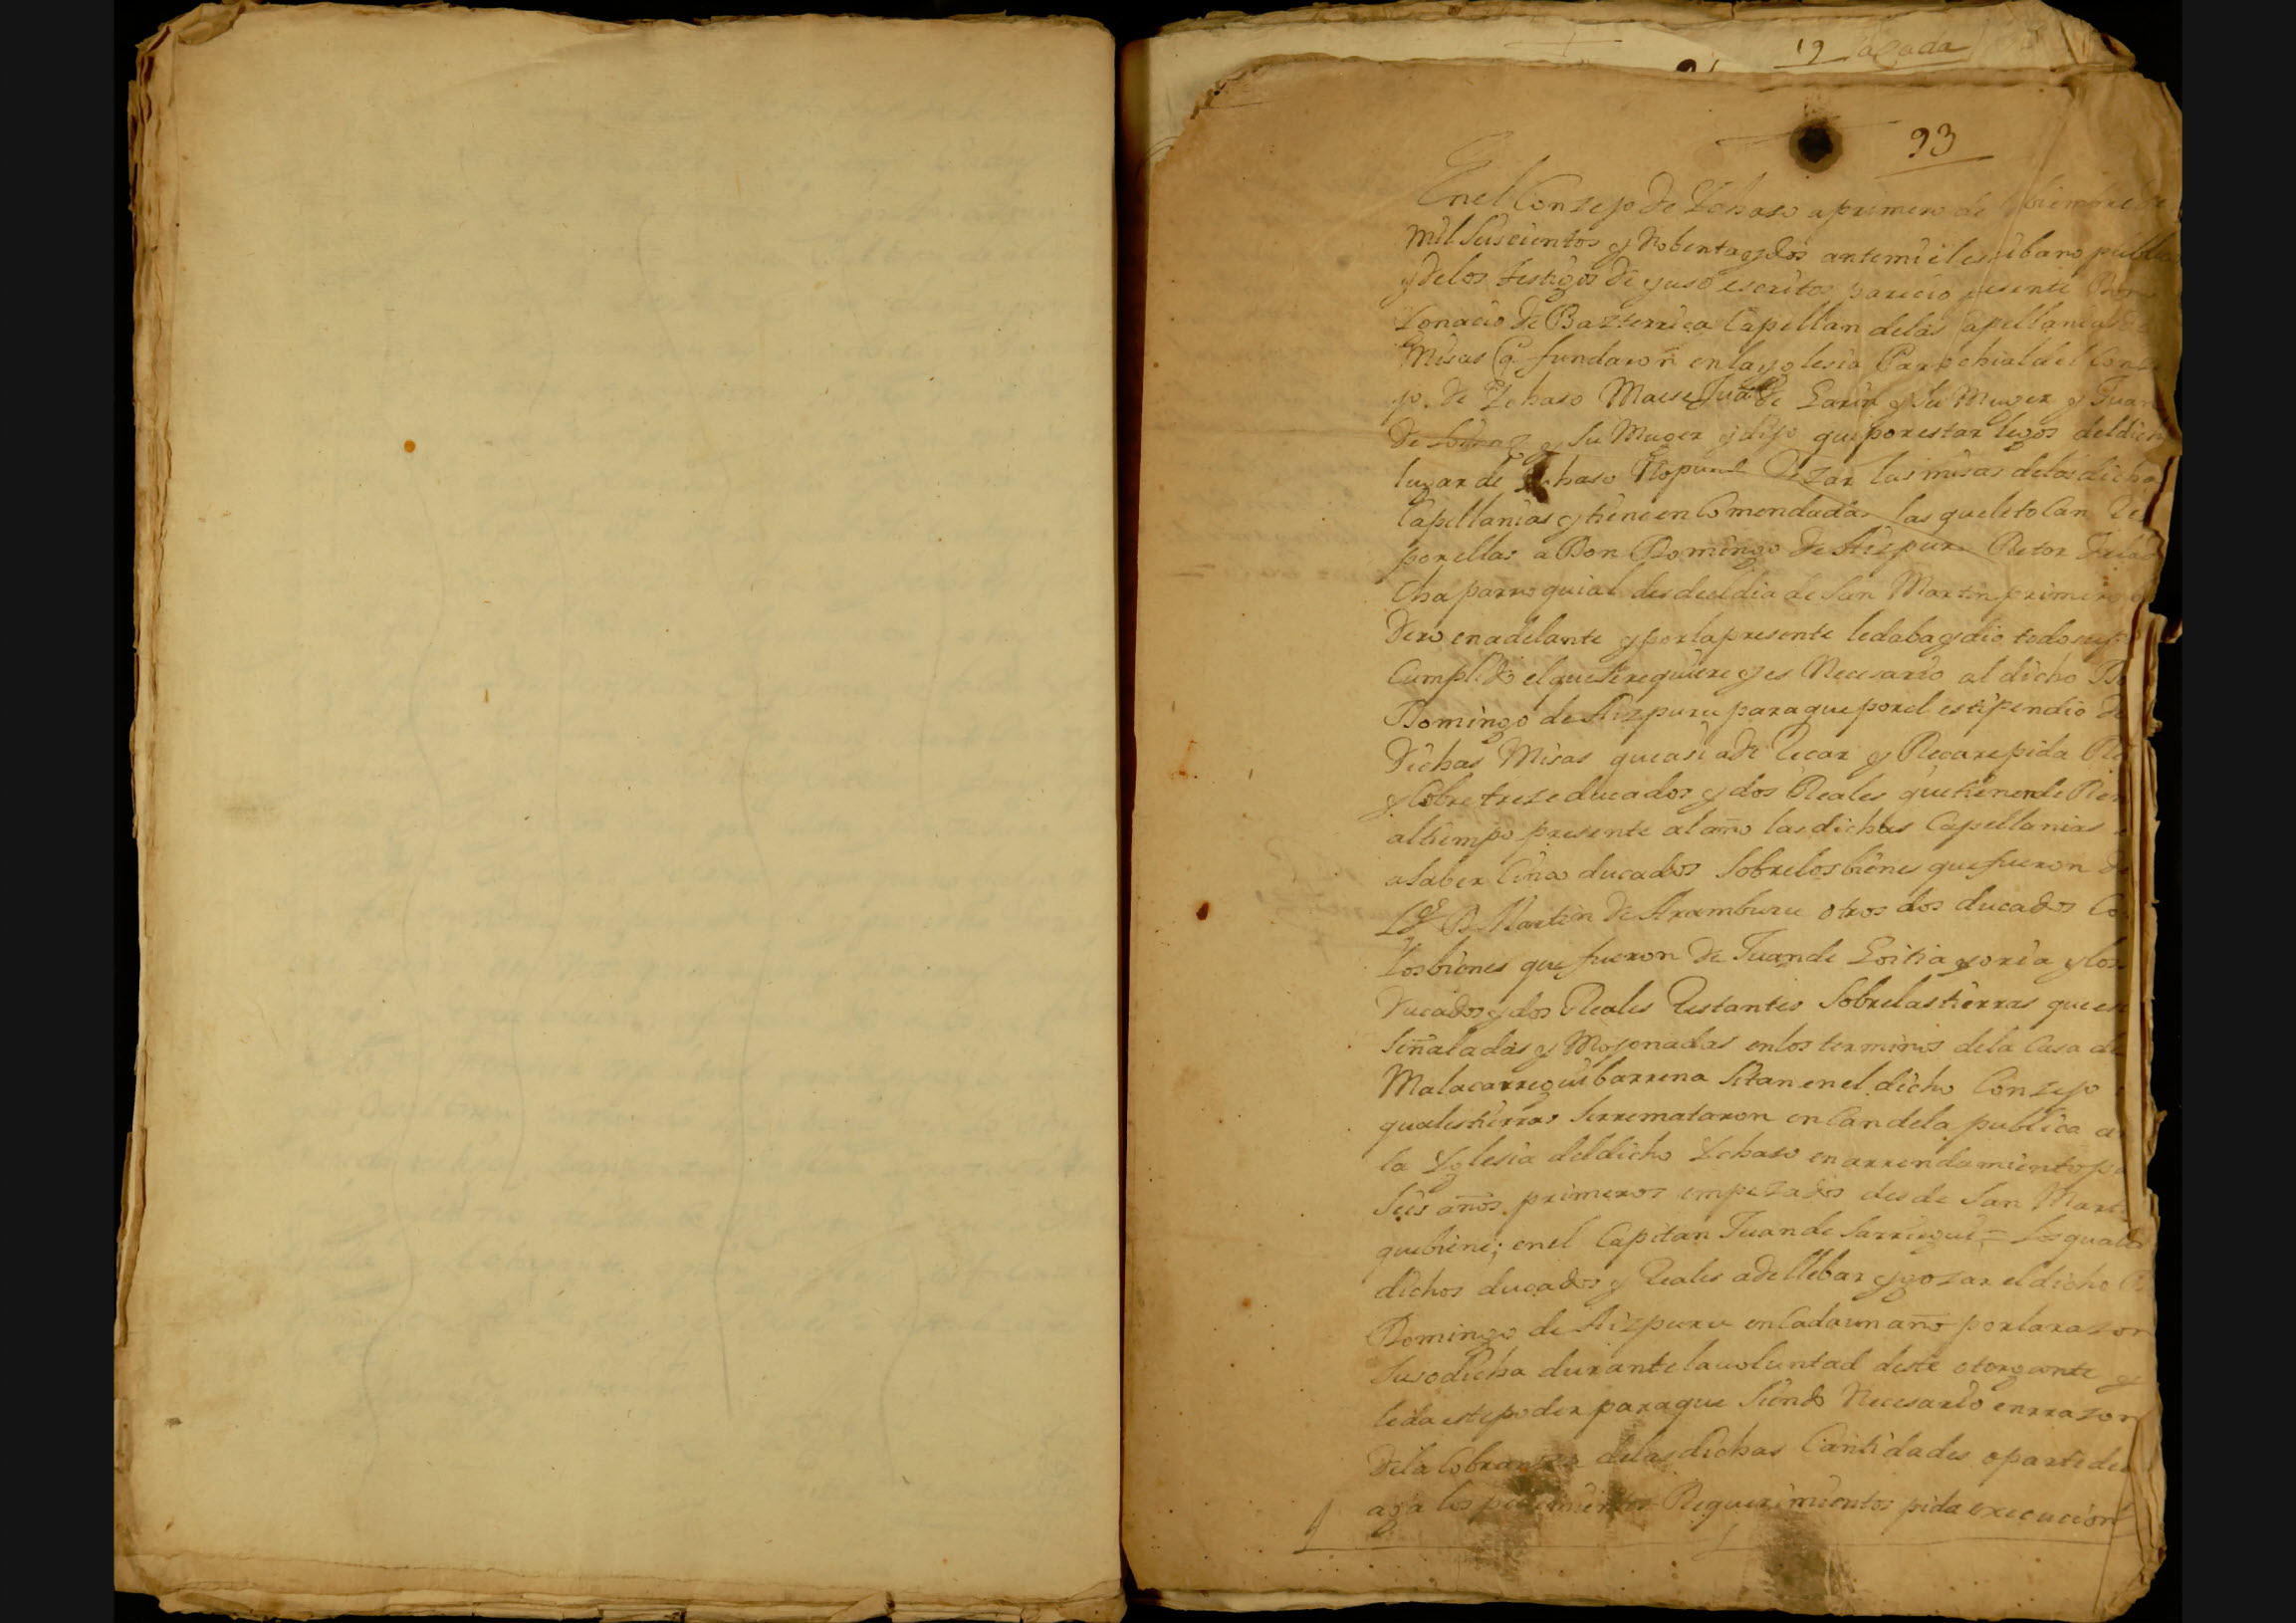 19 
93
En el Conzejo de Ychaso a primero de
mil Seiscientos y Nobenta y dos ante mi el escribano publico
y de los testigos de yuso escritos parecio presente Don
Ygnacio de Bazterrica Capellan de las Capellanias de
Misas q̃ fundaron en la yglesia Parrochial del Conze
jo de Ychaso Maese Juã de Larin y Su Muger y Juan
de y Su Muger y dijo que por estar legos del dicho
lugar de Ychaso No puede Rezar las misas de las dicha
Capellanias y tiene en Comendadas las que le tocan
por ellas a Don Domingo de Aizpuru Retor de la di
cha parroquial desde el dia de San Martin primero
dero en adelante y por la presente le daba y dio todo su p
Cumplido el que se requiere y es Necesario al dicho Do
Domingo de Aizpuru para que por el estipendio de
dichas Misas que asi a de Recar y Recare pida Re
y Cobre treze ducados y dos Reales que tienen de Ren
al tiempo presente al año las dichas Capellanias
a Saber Cinco ducados Sobre los bienes que fueron de
Ldo D Martin de Aramburu otros dos ducados So
Los bienes que fueron de Juan de Loitia y oria y los
ducados y dos Reales Restantes Sobre las tierras que es
Señaladas y Mojonadas en los terminos de la Casa de
Malacarreguibarrena Sitan en el dicho Conzejo
quales tierras Se rremataron en Candela publica
la Yglesia del dicho Ychaso en arrendamiento po
Seis años primeros empezados desde San Mart
que biene; en el Capitan Juan de Sarriegui = Los quales
dichos ducados y Reales a de llebar y gozar el dicho
Domingo de Aizpuru en Cada un año por la razon
Susodicha durante la voluntad deste otorgante y
le da este poder para que Siendo Necesario en rrazon
de la Cobranza de las dichas Cantidades o parte de
aga los pedimientos Requerimientos pida execucion